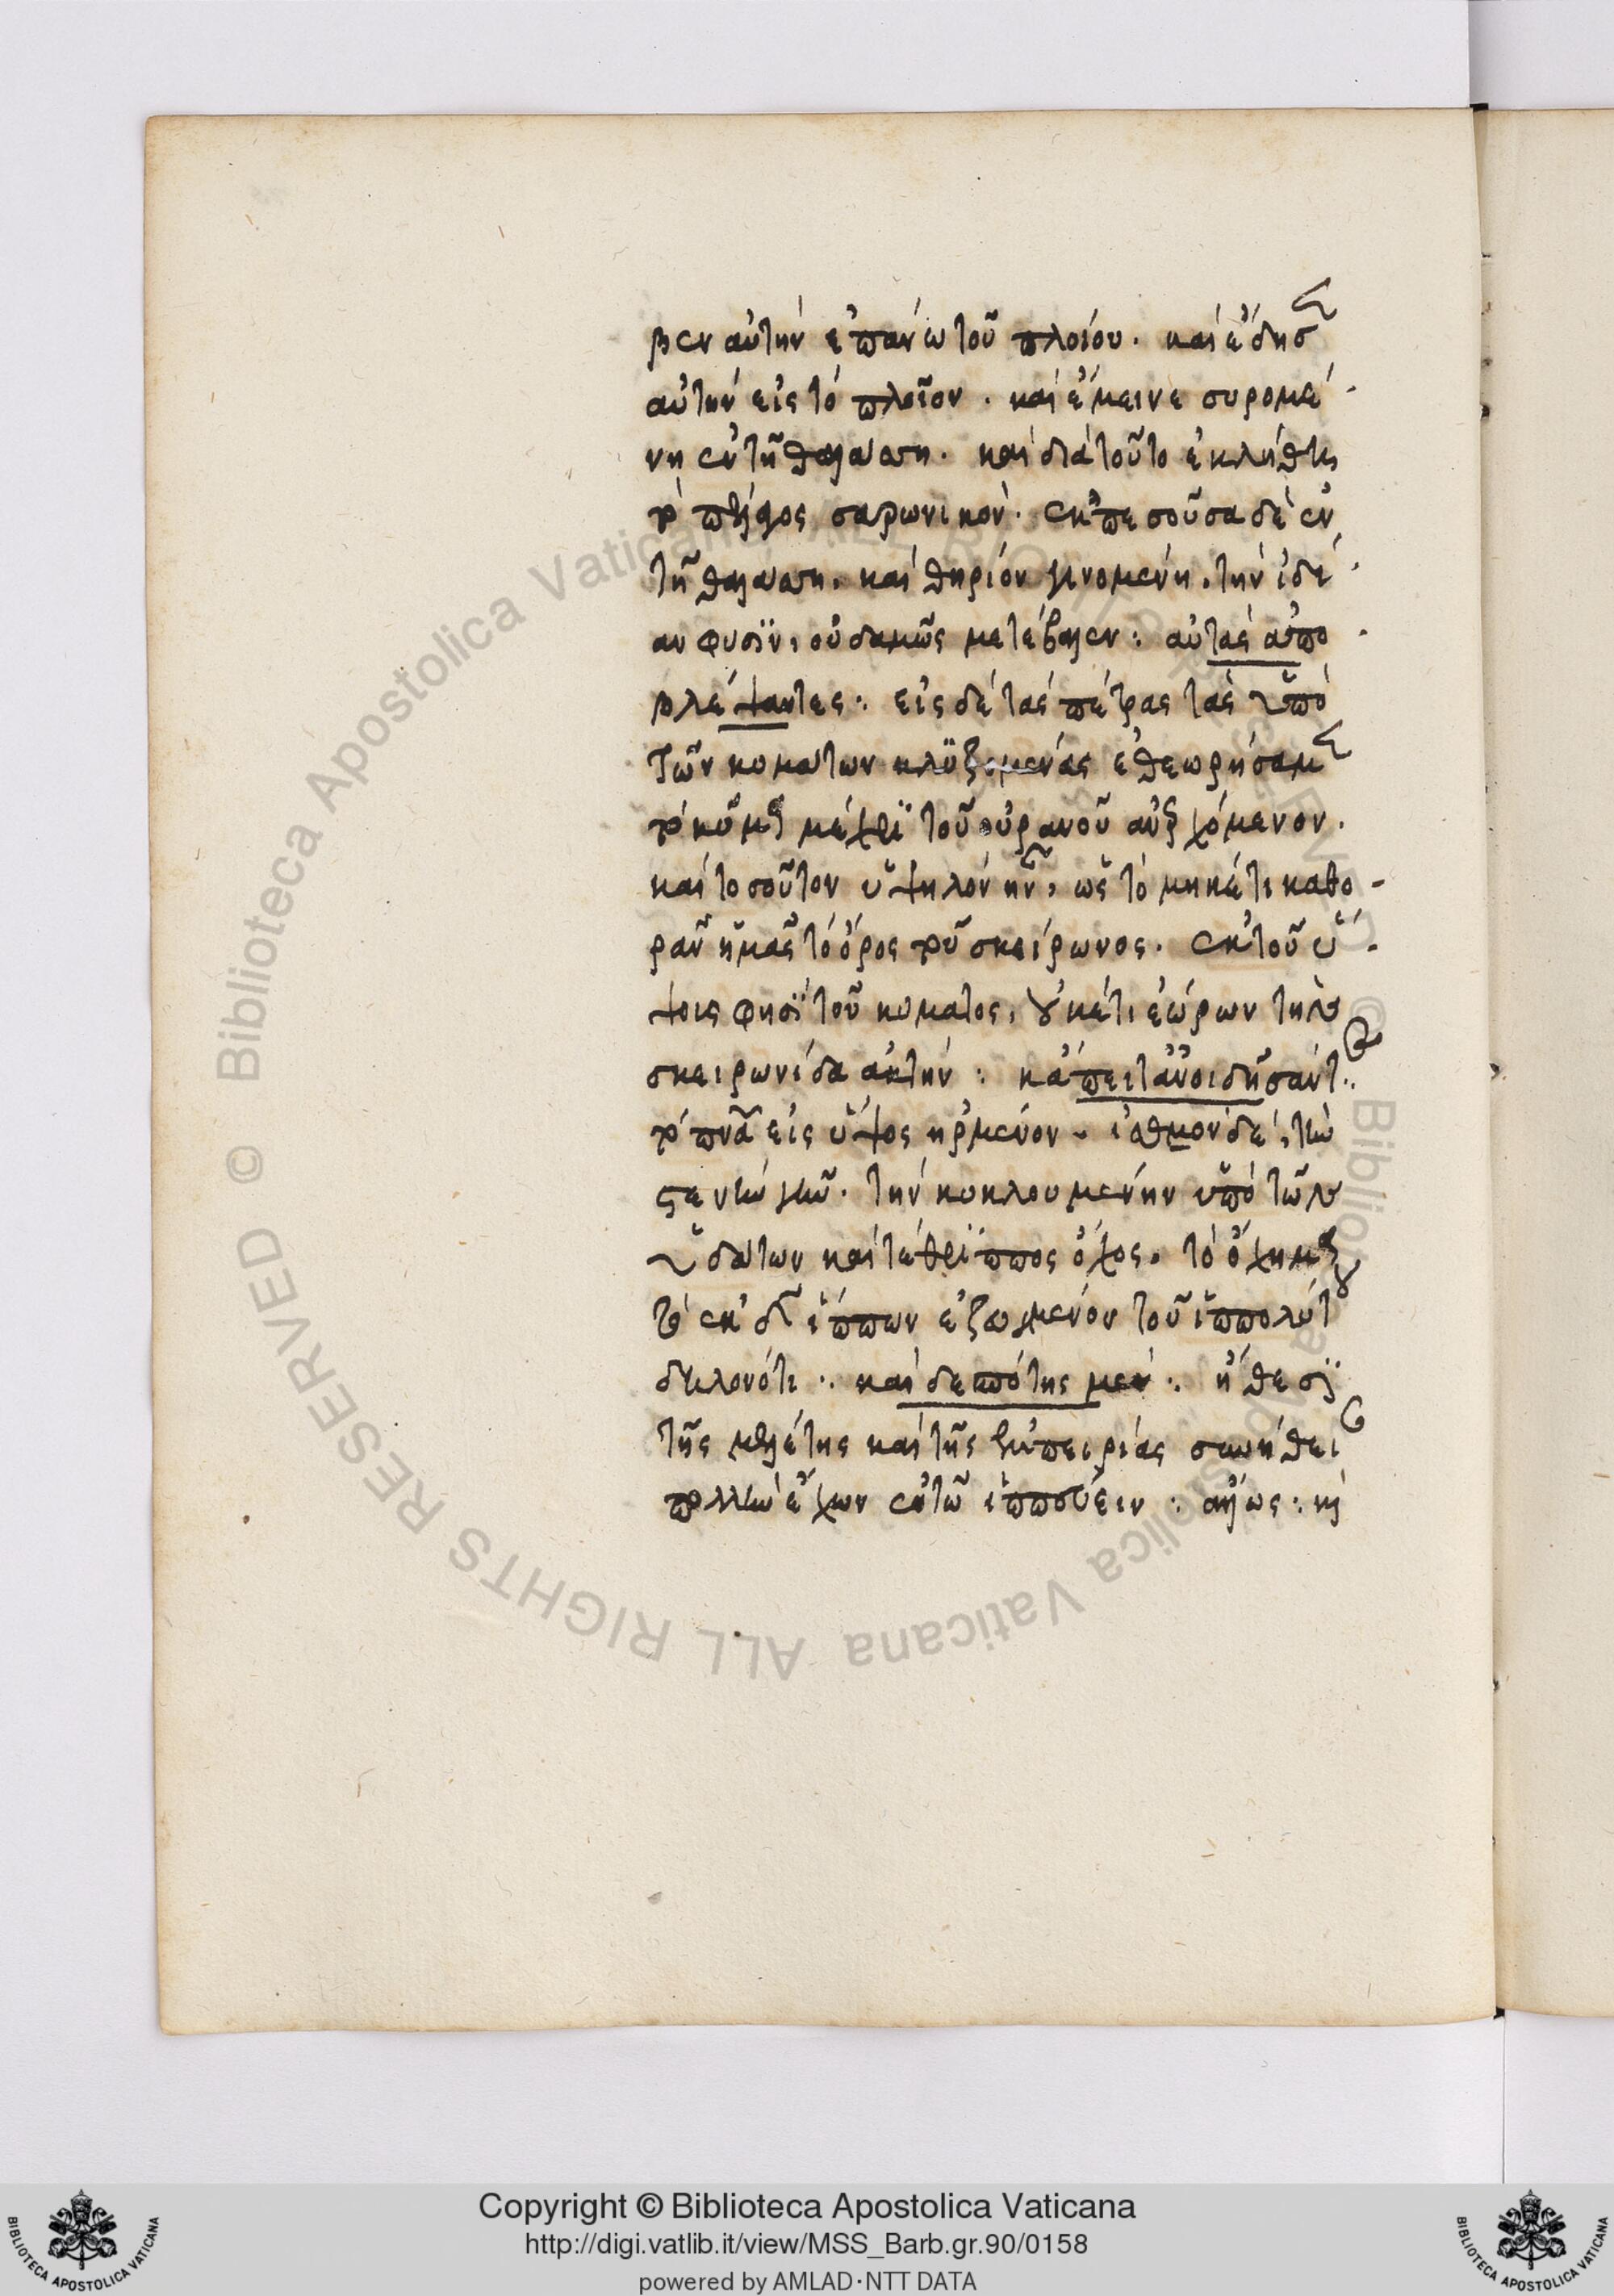 βεν αὐτὴν ἐπάνω τοῦ πλοίου. καὶ ἔδησ
αὐτὴν εἰς τὸ πλοῖον. καὶ ἔμεινε συρομέ-
νη ἐν τῆ θαλάσση. καὶ διὰ τοῦτο ἐκλήθη
τὸ πέλαγος σαρωνικόν. ἐκπεσοῦσα δὲ ἐν
τῆ θαλάσση. καὶ θηρίον γενομένη. τὴν ἰδί-
αν φύσϊν, οὐδαμῶς μετέβαλεν: αὐτὰς ἀπο-
βλέψαντες: εἰς δὲ τὰς πέτρας τὰς ὑπὸ
τῶν κυμάτων κλϋζομένας ἐθεωρήσαμ
τὸ κῦμα μέχρϊ τοῦ οὐρανοῦ αὐξόμενον.
καὶ τοσοῦτον ὑψηλὸν ἦν, ὡς τὸ μηκέτι καθο-
ρᾶν ἡμᾶς τὸ ὄρος τοῦ σκείρωνος. ἐκ τοῦ ὕ-
ψους φησϊ τοῦ κύματος, οὐκέτι ἑώρων τὴν
σκειρωνίδα ἀκτήν: κἄπειτ' ἀνοιδῆσάν τ
τὸ πνᾶ εἰς ὕψος ἠρμένον. ἰσθμὸν δὲ, τὴν
στενὴν γῆν. τὴν κυκλουμένην ὑπὸ τῶν
ὑδάτων καὶ τέθρϊππος ὄχος. τὸ ὄχημα
τὸ ἐκ δ ἵππων ἐζευγμένον τοῦ ἱππολύτ
δηλονότι: καὶ δεσπότης μὲν: ἤθεσϊ
τῆς μελέτης καὶ τῆς ἐμπειρίας συνήθει
πολλὴν ἔχων ἐν τῶ ἱππεύειν: ἄλλως: καὶ
Copyright © Biblioteca Apostolica Vaticana
http://digi.vatlib.it/view/MSS_Barb.gr.90/0158
powered by AMLAD·NTT DATA
© Biblioteca Apostolica Vaticana ALL RIGHTS RESERVED
BIBLIOTECA APOSTOLICA VATICANA
BIBLIOTECA APOSTOLICA VATICANA